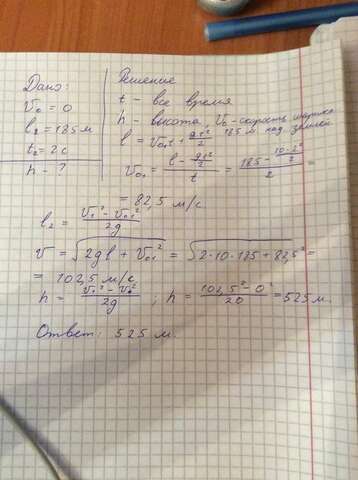 Дано:
V₀ = 0
l₂ = 185 м
t₂ = 2 с
h - ?
Решение
t - все время
h - высота, V₀₁ - скорость шарика
185 м над землей
l = V₀₁t + gt²/2
V₀₁ = (l - gt²/2)/t = (185 - 10·2²/2)/2 =
= 82,5 м/с
l₂ = (V₁² - V₀₁²)/2g
V = √(2gl + V₀₁²) = √(2·10·185 + 82,5²) =
= 102,5 м/с
h = (V₁² - V₀²)/2g ; h = (102,5² - 0²)/20 = 525 м.
Ответ: 525 м.